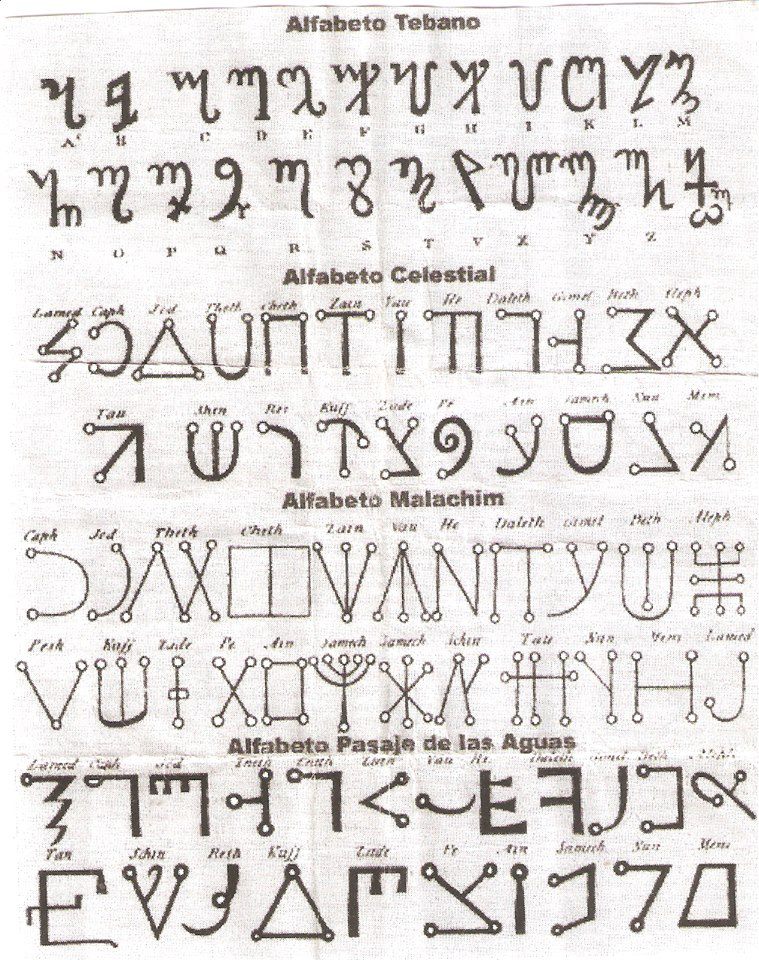 Alfabeto Tebano
A B C D E F G H I K L M
N O P Q R S T V X Y Z
Alfabeto Celestial
Lamed Caph Jod Theth Cheth Zain Vau He Daleth Gimel Beth Aleph
Tau Shin Res Kuff Zade Pe Ain Samech Nun Mem
Alfabeto Malachim
Caph Jod Theth Cheth Zain Vau He Daleth Gimel Beth Aleph
Resh Kuff Zade Pe Ain Samech Samech Schin Tau Nun Mem Lamed
Alfabeto Pasaje de las Aguas
Lamed Caph Jod Theth Cheth Zain Vau He Daleth Gimel Beth Aleph
Tau Schin Resh Kuff Zade Pe Ain Samech Nun Mem